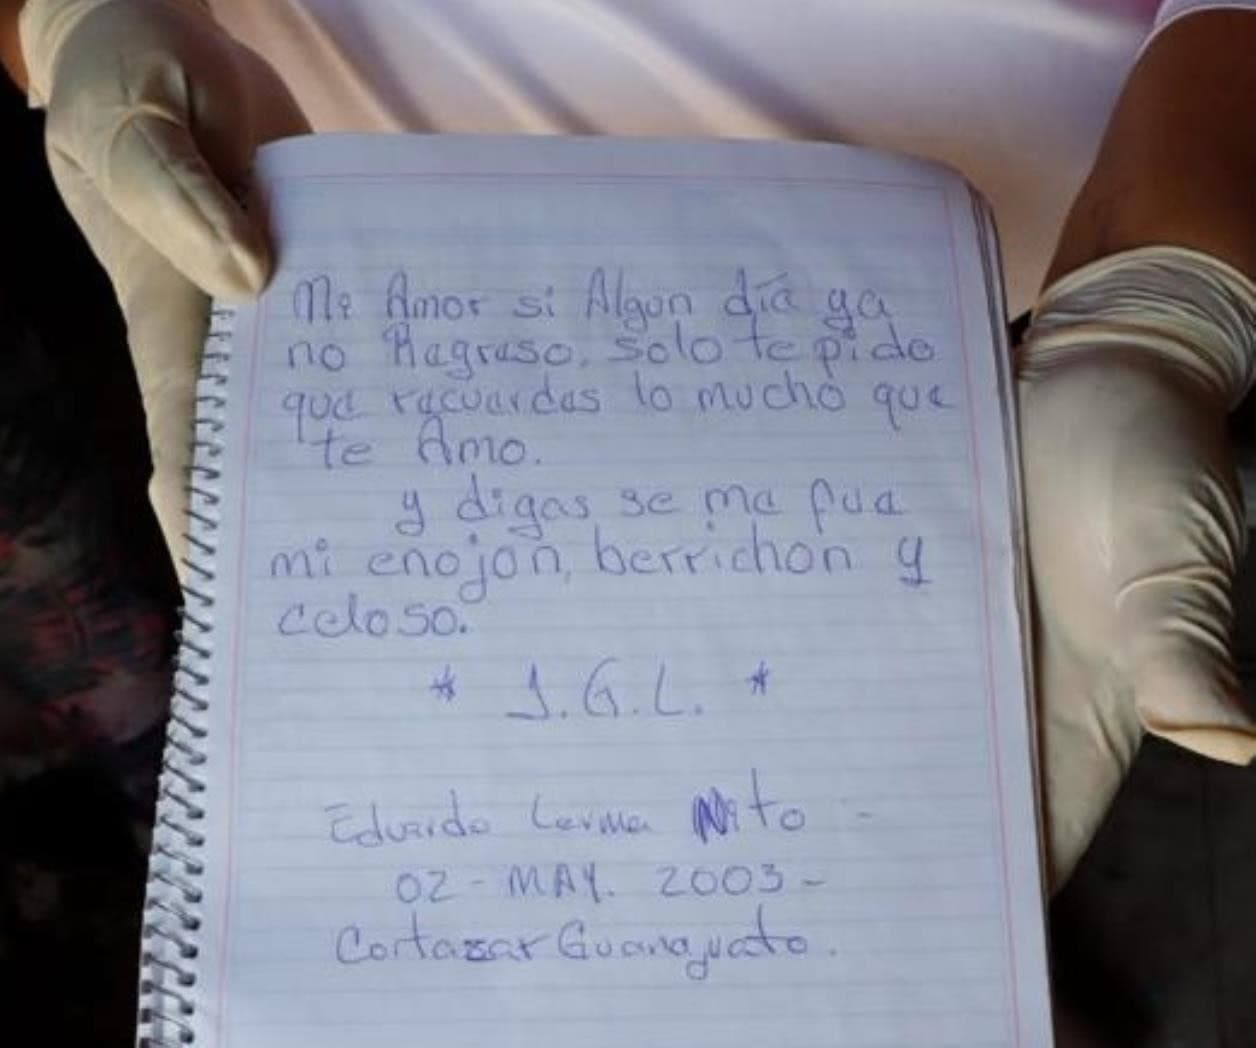 Mi Amor si Algun día ya
no Ragraso. solo te pido
que racuardas lo mucho que
te Amo.
y digas se ma fua
mi enojon, berrichon y
celoso.
* J.G.L. *
Eduardo Lerma Nito -
02 - MAY. 2003 -
Cortazar Guanajuato.